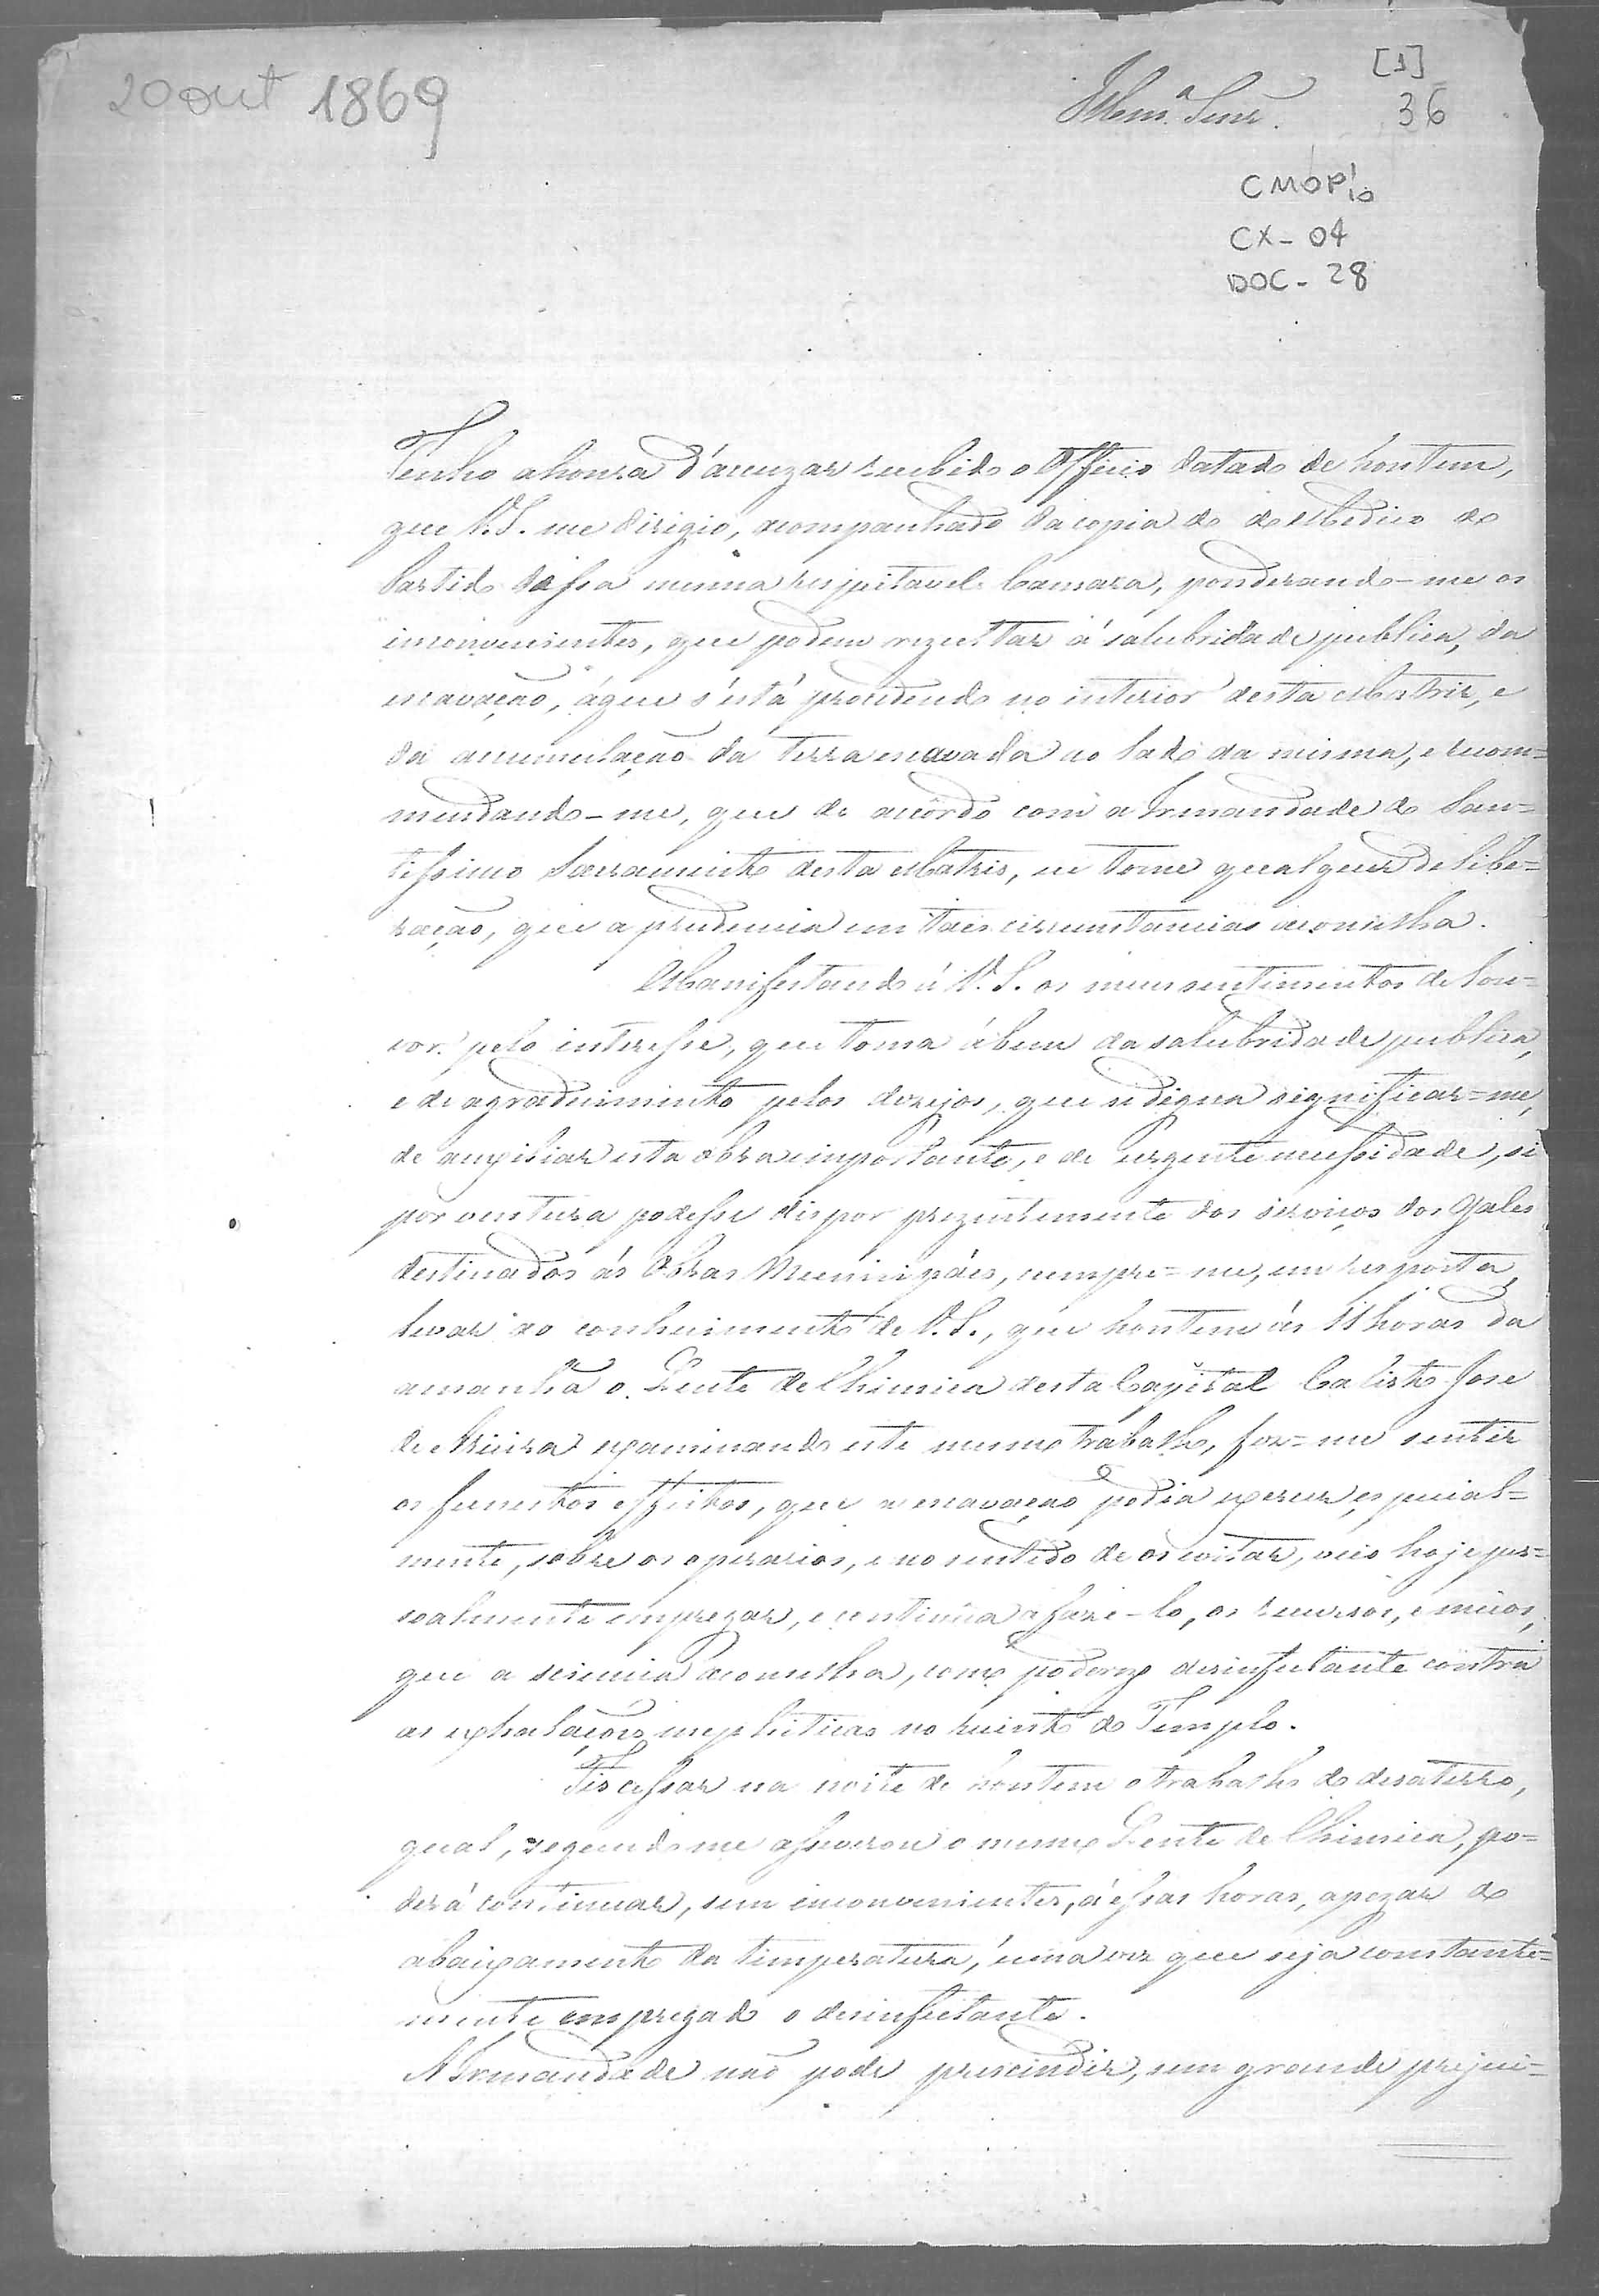 20 out 1869
[1]
Illm.ª Senr.
36
CMOP
CX - 04
DOC - 28
Tenho a honra d'accuzar recebido o Officio datado de hontem,
que V.S. me dirigio, acompanhado da copia do do Medico do
Partido dessa mesma respeitavel Camara, ponderando-me os
inconvenientes, que podem rezultar á salubridade publica, da
excavação, á que s'está procedendo no interior desta Matriz, e
da accumulação da terra excavada ao lado da mesma, e recom=
mendando-me, que de accôrdo com a Irmandade do San=
tissimo Sacramento desta Matriz, se tome qualquer delibe=
ração, que a prudencia em taes circumstancias aconselha.
Manifestando á V.S. os meus sentimentos de lou=
vor pelo interesse, que toma á bem da salubridade publica,
e de agradecimento pelos dezejos, que se digna significar=me,
de auxiliar esta obra importante, e de urgente necessidade, si
por ventura podesse dispor prezentemente dos serviços dos Galés
destinados ás Obras Municipáes, cumpre=me, em resposta,
levar ao conhecimento de V.S., que hontem ás 11 horas da
amanhã o Lente de Chimica desta Capital Calisto José
de Arieira examinando este mesmo trabalho, fez=me sentir
os funestos effeitos, que a excavação podia exercer, especial=
mente, sobre os operarios, e no sentido de os evitar, veio hoje pes=
soalmente empregar, e continúa a fazê-lo, os recursos, e meios,
que a sciencia aconselha, como poderozo desinfectante contra
as exhalações mephiticas no recinto do Templo.
Fiz cessar na noite de hontem o trabalho do desaterro,
qual, segundo me asseverou o mesmo Lente de Chimica, po=
derá continuar, sem inconvenientes, á essas horas, apezar do
abaixamento da temperatura, uma vez que seja constante=
mente empregado o desinfectante.
A Irmandade não pode prescindir, sem grande prejui=